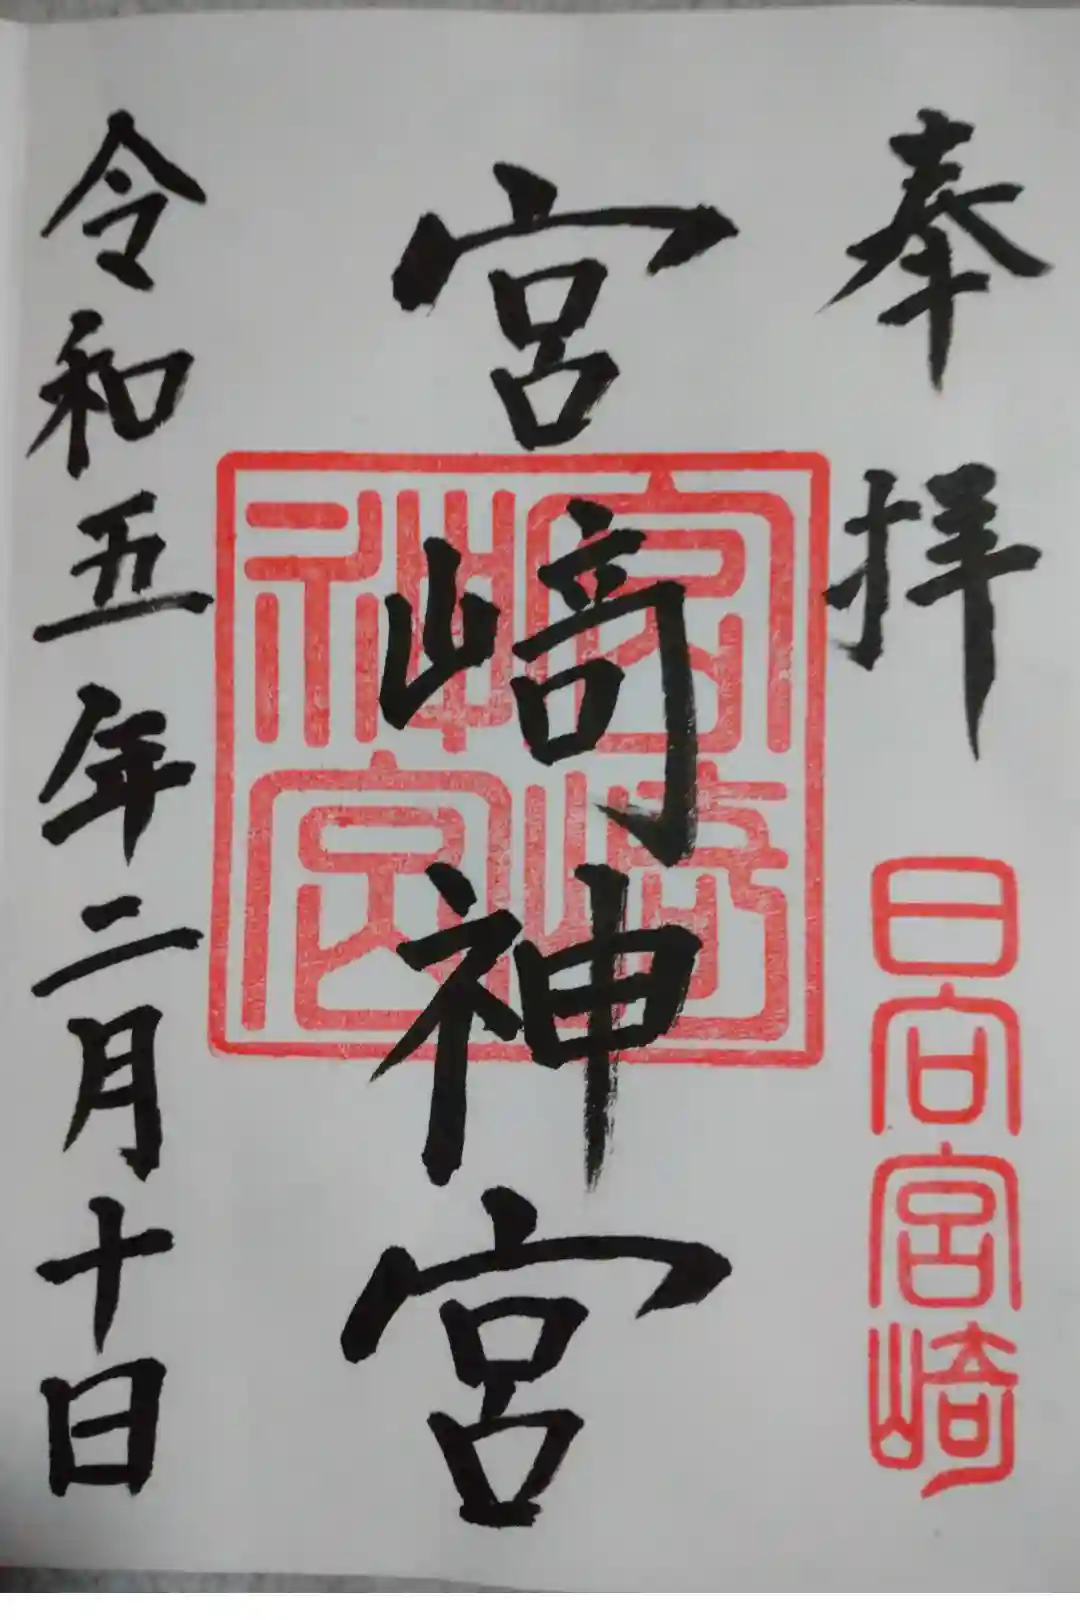 奉拝
日向宮崎
宮崎神宮
宮崎神宮
令和五年二月十日